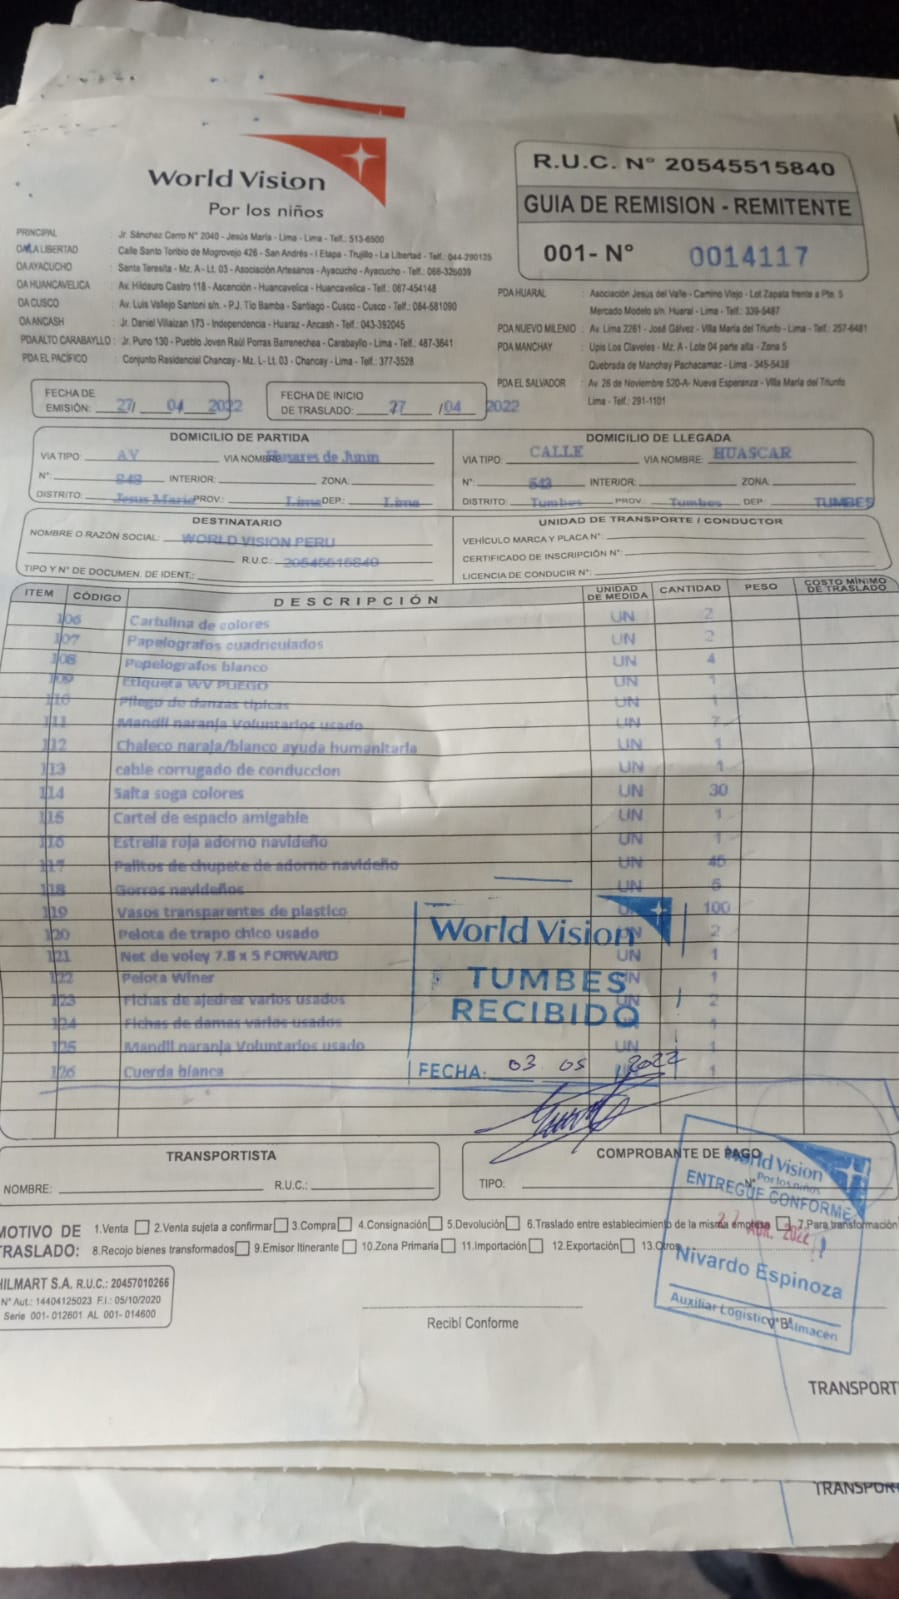 World Vision
Por los niños
R.U.C. Nº 20545515840
GUIA DE REMISION - REMITENTE
001- Nº 0014117
PRINCIPAL : Jr. Sánchez Cerro Nº 2040 - Jesús María - Lima - Lima - Telf.: 513-6500
OA LA LIBERTAD : Calle Santo Toribio de Mogrovejo 426 - San Andrés - I Etapa - Trujillo - La Libertad - Telf.: 044-290125
OA AYACUCHO : Santa Teresita - Mz. A - Lt. 03 - Asociación Artesanos - Ayacucho - Ayacucho - Telf.: 066-325039
OA HUANCAVELICA : Av. Hildauro Castro 118 - Ascención - Huancavelica - Huancavelica - Telf.: 067-454148
OA CUSCO : Av. Luis Vallejo Santoni s/n. - P.J. Tío Bamba - Santiago - Cusco - Cusco - Telf.: 084-581090
OA ANCASH : Jr. Daniel Villaizan 173 - Independencia - Huaraz - Ancash - Telf.: 043-392045
PDA ALTO CARABAYLLO : Jr. Puno 130 - Pueblo Joven Raúl Porras Barrenechea - Carabayllo - Lima - Telf.: 487-3641
PDA EL PACÍFICO : Conjunto Residencial Chancay - Mz. L- Lt. 03 - Chancay - Lima - Telf.: 377-3528
PDA HUARAL : Asociación Jesús del Valle - Camino Viejo - Lot Zapata frente a Pte. 5
Mercado Modelo s/n. Huaral - Lima - Telf.: 339-5487
PDA NUEVO MILENIO : Av. Lima 2261 - José Gálvez - Villa María del Triunfo - Lima - Telf.: 257-6481
PDA MANCHAY : Upis Los Claveles - Mz. A - Lote 04 parte alta - Zona 5
Quebrada de Manchay Pachacamac - Lima - 345-5438
PDA EL SALVADOR : Av. 26 de Noviembre 520-A- Nueva Esperanza - Villa María del Triunfo
Lima - Telf.: 291-1101
FECHA DE EMISIÓN: 27/ 04 2022
FECHA DE INICIO DE TRASLADO: 27 /04 2022
DOMICILIO DE PARTIDA
VIA TIPO: AV VIA NOMBRE: Husares de Junin
Nº: 848 INTERIOR: ZONA:
DISTRITO: Jesus Maria PROV.: Lima DEP.: Lima
DOMICILIO DE LLEGADA
VIA TIPO: CALLE VIA NOMBRE: HUASCAR
Nº: 543 INTERIOR: ZONA:
DISTRITO: Tumbes PROV: Tumbes DEP: TUMBES
DESTINATARIO
NOMBRE O RAZÓN SOCIAL: WORLD VISION PERU
R.U.C.: 20545515840
TIPO Y Nº DE DOCUMEN. DE IDENT.:
UNIDAD DE TRANSPORTE / CONDUCTOR
VEHÍCULO MARCA Y PLACA Nº:
CERTIFICADO DE INSCRIPCIÓN Nº:
LICENCIA DE CONDUCIR Nº:
ITEM CÓDIGO DESCRIPCIÓN UNIDAD DE MEDIDA CANTIDAD PESO COSTO MÍNIMO DE TRASLADO
106 Cartulina de colores UN 2
107 Papelografos cuadriculados UN 2
108 Papelografos blanco UN 4
109 Etiqueta WV PUEGO UN 1
110 Pliego de danzas tipicas UN 1
111 Mandil naranja Voluntarios usado UN 7
112 Chaleco naraja/blanco ayuda humanitaria UN 1
113 cable corrugado de conduccion UN 1
114 Salta soga colores UN 30
115 Cartel de espacio amigable UN 1
116 Estrella roja adorno navideño UN 1
117 Palitos de chupete de adorno navideño UN 45
118 Gorros navideños UN 5
119 Vasos transparentes de plastico UN 100
120 Pelota de trapo chico usado UN 2
121 Net de voley 7.8 x 5 FORWARD UN 1
122 Pelota Winer UN 1
123 Fichas de ajedrez varios usados UN 2
124 Fichas de damas varios usados UN 1
125 Mandil naranja Voluntarios usado UN 1
126 Cuerda blanca UN 1
World Vision
TUMBES
RECIBIDO
FECHA: 03 05 2022
TRANSPORTISTA
NOMBRE: R.U.C.:
COMPROBANTE DE PAGO
TIPO: Nº
World Vision
Por los niños
ENTREGUE CONFORME
27 ABR. 2022
Nivardo Espinoza
Auxiliar Logistico Almacén
MOTIVO DE TRASLADO:
1.Venta 2.Venta sujeta a confirmar 3.Compra 4.Consignación 5.Devolución 6.Traslado entre establecimiento de la misma empresa 7.Para transformación
8.Recojo bienes transformados 9.Emisor Itinerante 10.Zona Primaria 11.Importación 12.Exportación 13.Otros
HILMART S.A. R.U.C.: 20457010266
Nº Aut.: 14404125023 F.I.: 05/10/2020
Serie 001- 012601 AL 001- 014600
Recibí Conforme
VºBº
TRANSPORT
TRANSPOR